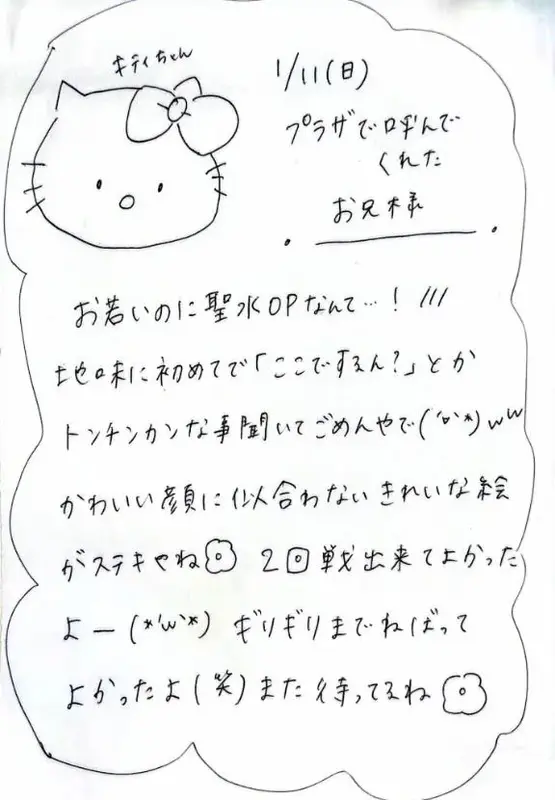 キティちゃん
1/11(日)
プラザで呼んで
くれた
お兄様
お若いのに聖水OPなんて…! ///
地味に初めてで「ここでするん?」とか
トンチンカンな事聞いてごめんやで(*)ww
かわいい顔に似合わないきれいな絵
がステキやね 2回戦出来てよかった
よー(*'ω'*) ギリギリまでねばって
よかったよ(笑)また待ってるね